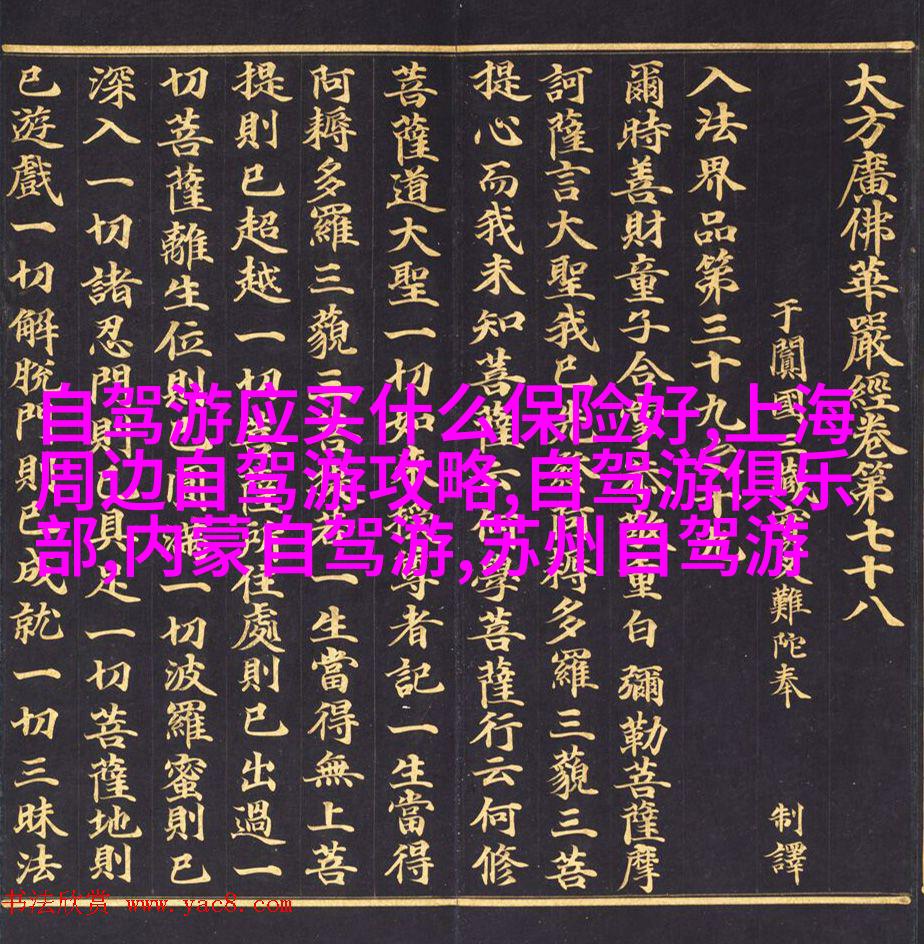 大方廣佛華嚴經卷第七十八
于闐國三藏 叉難陀奉 制譯
入法界品第三十九之十九
爾時善財童子合掌恭敬重白彌勒菩薩摩
訶薩言大聖我已 得多羅三藐三菩
提心而我未知菩薩云何學菩薩行云何修
菩薩道大聖一切如來授尊者記一生當得
阿耨多羅三藐三菩提若一生當得無上菩
提則已超越一切菩薩所住處則已出過一
切菩薩離生位則已 滿一切波羅蜜則已
深入一切諸忍門則已具足一切菩薩地則
已遊戲一切解脫門則已成就一切三昧法
自驾游应买什么保险好,上海
周边自驾游攻略,自驾游俱乐
部,内蒙自驾游,苏州自驾游
书法欣赏 www.yac8.com